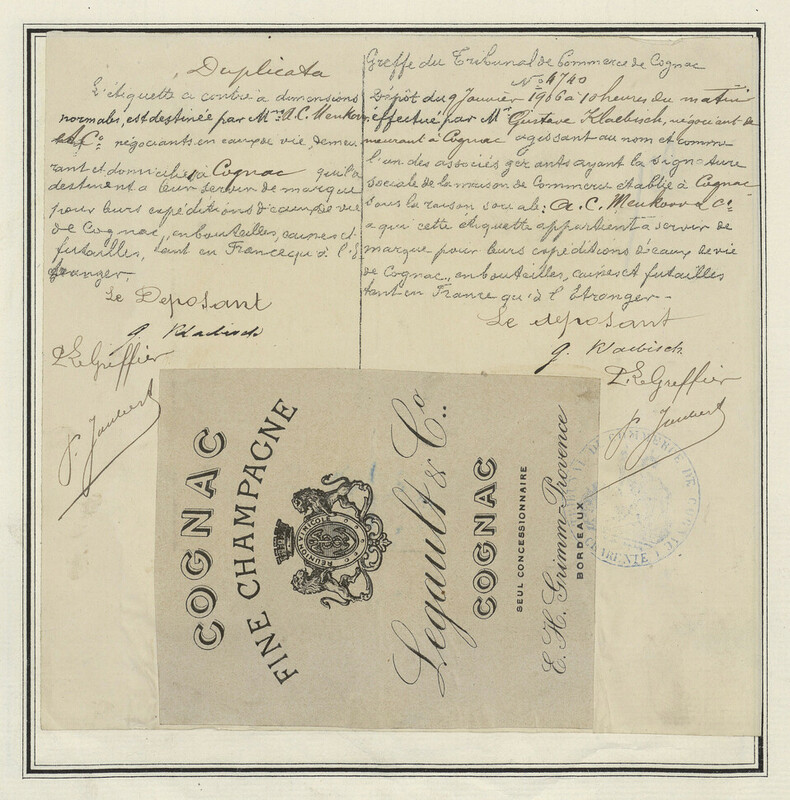 Duplicata
L'étiquette ci contre à dimensions
normales, est destinée par Mrs A.C. Meukow
& Co négociants en eaux de vie, demeu
rant et domiciliés à Cognac qui la
destinent à leur servir de marque
pour leurs expéditions d'eaux de vie
de Cognac, en bouteilles, caisses et
futailles, tant en France qu'à l'E
tranger.
Le Deposant
G. Klaebisch
Le Greffier
P. Jaubert
Greffe du Tribunal de Commerce de Cognac
No 4740
Dépôt du 9 Janvier 1906 à 10 heures du matin
effectué par Mr Gustave Klaebisch, négociant de
meurant à Cognac agissant au nom et comme
l'un des associés gérants ayant la signature
sociale de la maison de Commerce établie à Cognac
sous la raison sociale: A. C. Meukow & Co
à qui cette étiquette appartient à servir de
marque pour leurs expéditions d'eaux de vie
de Cognac, en bouteilles, caisses et futailles
tant en France qu'à l'Etranger.
Le deposant
G. Klaebisch
Le Greffier
P. Jaubert
COGNAC
FINE CHAMPAGNE
REUNION VINICOLE
Legault & Co.
COGNAC
SEUL CONCESSIONNAIRE
E. H. Grimm-Provence
BORDEAUX
DE COMMERCE DE COGNAC
CHARENTE